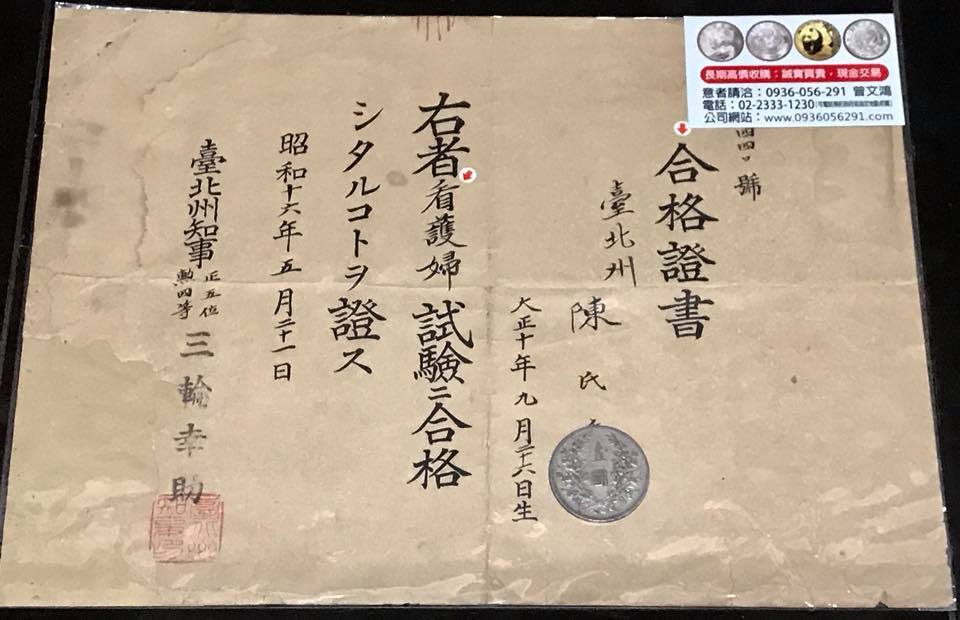 長期高價收購：誠實買賣，現金交易
意者請洽：0936-056-291 曾文鴻
電話：02-2333-1230
公司網站：www.0936056291.com
四四口號
合格證書
臺北州
陳氏
大正十年九月二十六日生
右者看護婦試驗ニ合格
シタルコトヲ證ス
昭和十六年五月二十一日
臺北州知事 正五位 勲四等 三輪幸助
壹圓